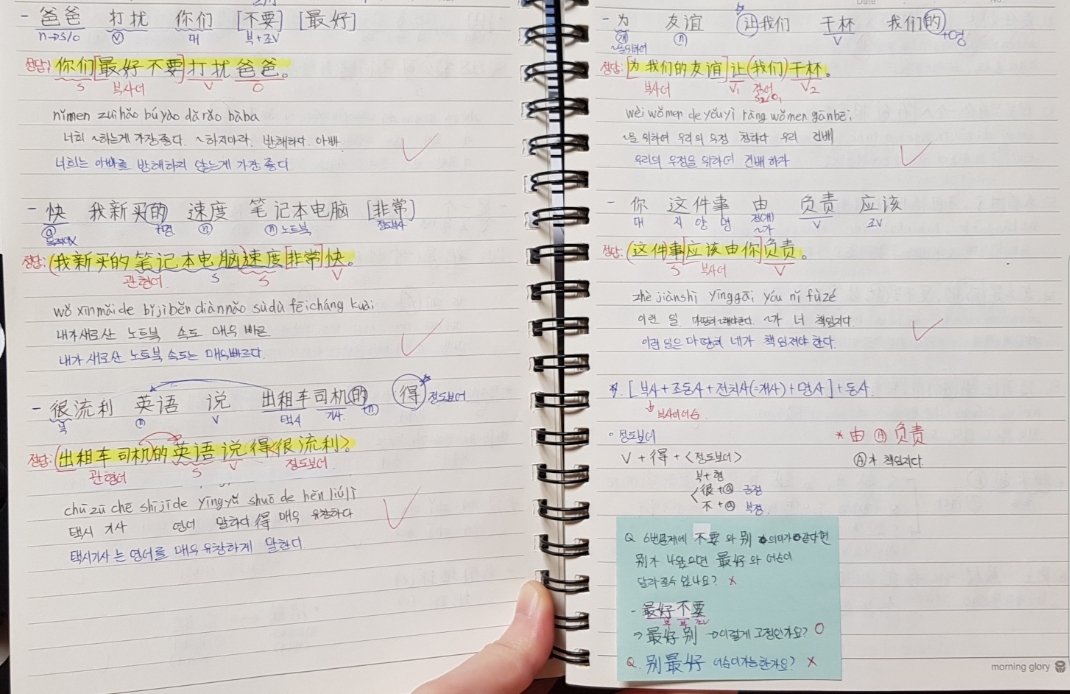 - 爸爸 打扰 你们 [不要] [最好]
n→s/o ⓥ 대 부+조V
정답: 你们 最好不要 打扰 爸爸。
S 부사어 V O
nǐmen zuìhǎo búyào dǎrǎo bàba
너희 ~하는게 가장좋다. ~하지마라. 반해하다. 아빠.
너희는 아빠를 반해하지 않는게 가장 좋다
- 快 我新买的 速度 笔记本电脑 [非常]
+명 ⓝ ⓝ 노트북 정도부사
정답: (我新买的 笔记本电脑 速度 非常 快。
관형어 S S V
wǒ xīnmǎide bǐjìběn diànnǎo sùdù fēicháng kuài
내가 새로산 노트북 속도 매우 빠른
내가 새로산 노트북 속도는 매우빠르다.
- 很流利 英语 说 出租车司机的 得 정도보어
부 ⓝ V 택시 기사 ⓝ
정답: (出租车司机的 英语 说 得 很流利〉
관형어 S V 정도보어
chū zū chē sījīde yīngyǔ shuō de hěn liúlì
택시 기사 영어 말하다 得 매우 유창하다
택시기사는 영어를 매우 유창하게 말한다
- 为 友谊 让我们 干杯 我们的
~을위하여 ⓝ V +명
정답: 为 我们的友谊 让 (我们) 干杯。
부사어 V₁ V₂
wèi wǒmen de yǒuyì ràng wǒmen gānbēi
~을 위하여 우리의 우정 청하다 우리 건배
우리의 우정을 위하여 건배 하자
- 你 这件事 由 负责 应该
대 지 양 명 전치 ~가 V 조V
정답: (这件事 应该由你 负责。
S 부사어 V
zhè jiànshì yīnggāi yóu nǐ fùzé
이런 일 마땅히~해야한다 ~가 너 책임지다
이런 일은 마땅히 네가 책임져야 한다
[부사+조동사+전치사(=개사)+명사]+동사
↳ 부사어어순
- 정도보어
V + 得 + <정도보어>
부+형
很+ⓐ 긍정
不+ⓐ 부정
* 由 Ⓐ 负责
Ⓐ가 책임지다
Q 6번문제에 不要 와 别 의 의미가 같다면
别가 나왔으면 最好 와 어순이
달라질수 있나요? x
- 最好不要
부 부 조V
→ 最好 别 →이렇게 고정인가요? O
Q. 别最好 어순이가능한가요? x
morning glory